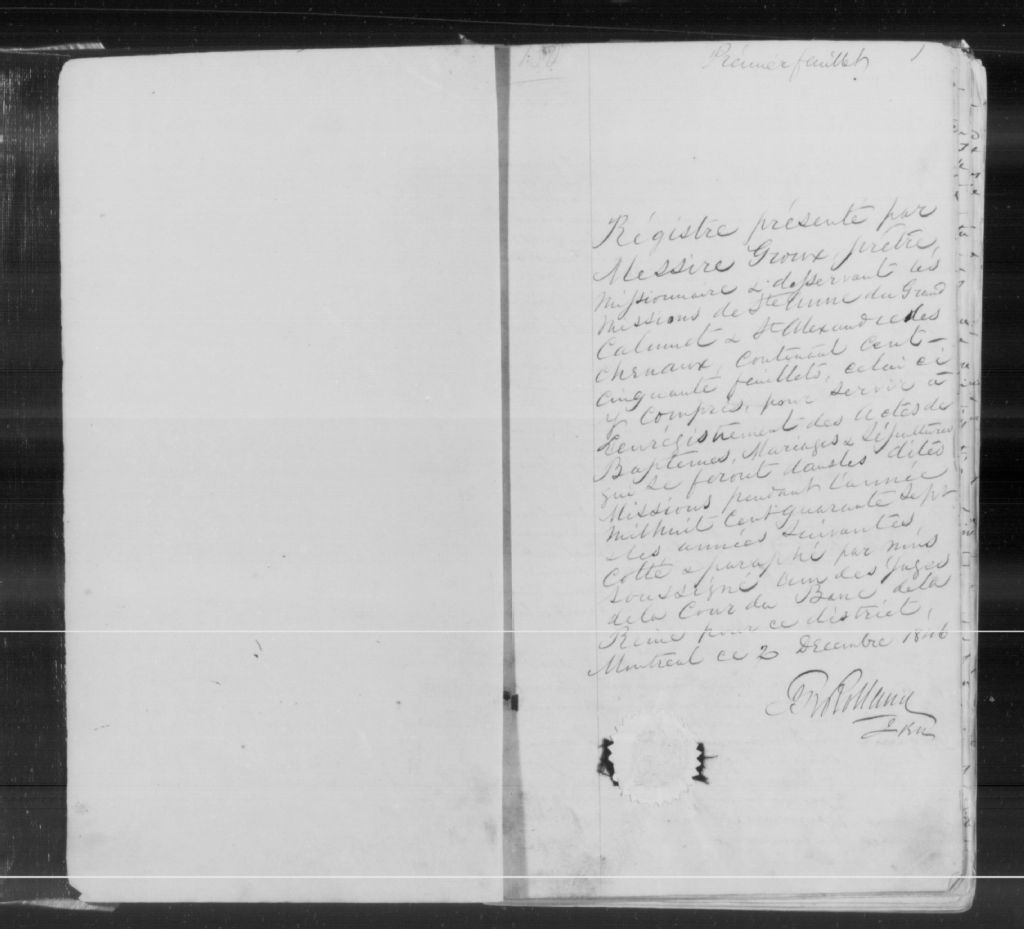 Prémier feuillet 1
Régistre présenté par
Messire Groux, prêtre,
Missionnaire & desservant les
missions de Ste Anne du Grand
Calumet & St Alexandre des
chenaux, contenant cent-
cinquante feuillets, celui ci
y compris, pour servir à
L'enrégistrement des Actes de
Baptêmes, Mariages & Sépultures
qui se feront dans les dites
Missions pendant l'année
mil huit Cent quarante Sept
& les années suivantes,
Cotté & paraphé par nous
Soussigné un des Juges
de la Cour du Banc de la
Reine pour ce district,
Montréal ce 2 Décembre 1846
Rolland